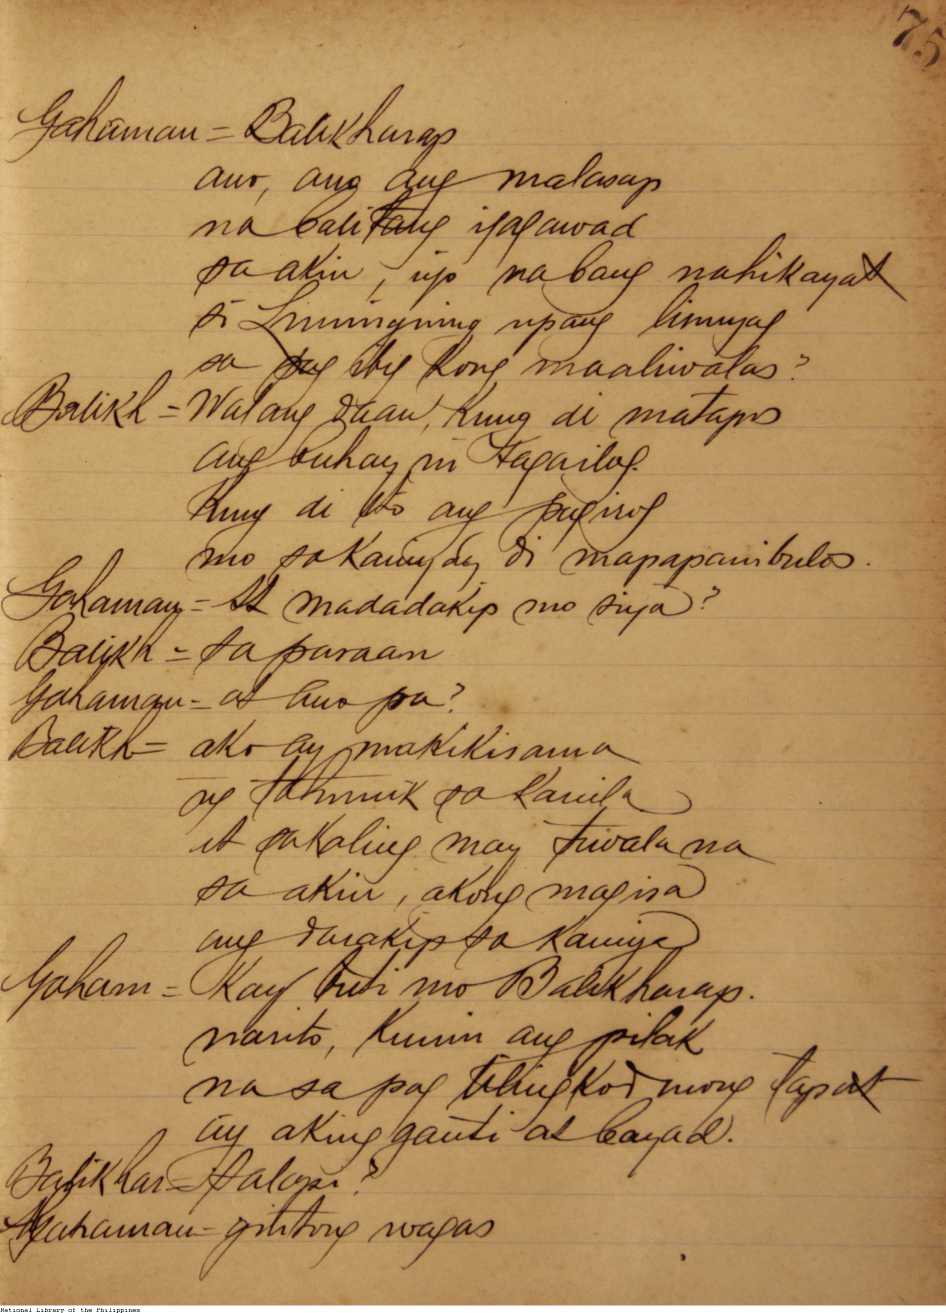 75
Gahaman = Balikharap
ano, ano ang malasap
na balitang igagawad
sa akin, iyo na bang nahikayat
si Liningning upang limiyag
sa pag ibig kong maaliwalas?
Balikh = Walang daan, kung di matapos
ang buhay ni Tagailog.
Kung di ito ang pagirog
mo sa kaniya'y di mapapanibulos.
Gahaman = At madadakip mo siya?
Balikh = sa paraan
Gahaman = at ano pa?
Balikh = ako ay makikisama
ng tahimik sa kanila
at sakaling may tiwala na
sa akin, akong magisa
ang darakip sa kaniya
Gaham = Kay buti mo Balikharap.
narito, kunin ang pilak
na sa pag tilingkod mong tapat
ay aking ganti at bayad.
Balikhar = Salapi?
Gahaman = gintong wagas
National Library of the Philippines